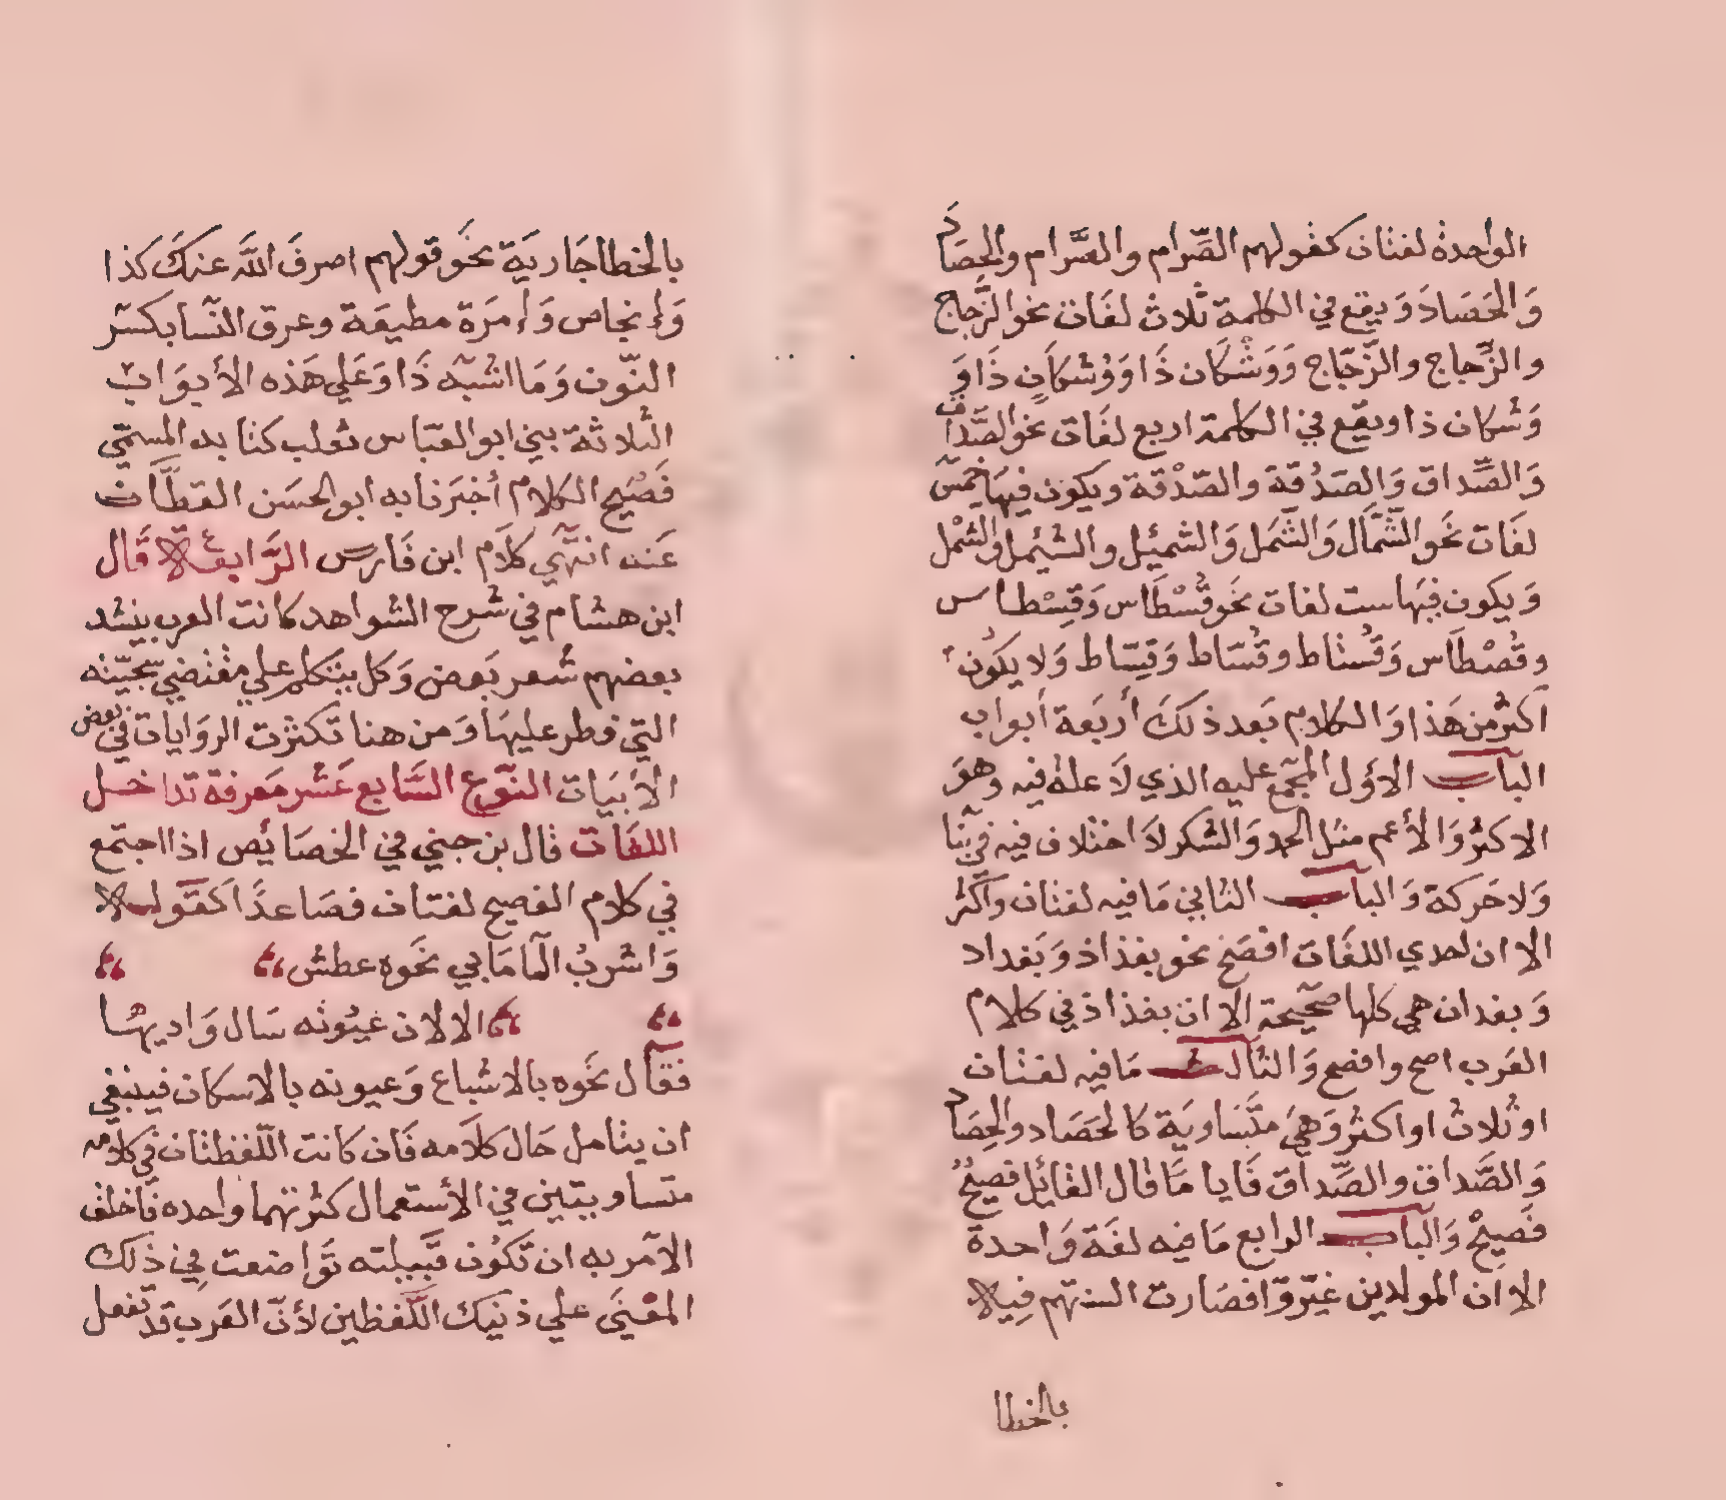 الواحدة لغتان كقولهم الصِّرام والصَّرام والحِصَاد
وَالحَصَاد وَيقع في الكلمة ثلاث لغَات نحو الزُّجاج
والزِّجاج والزَّجاج وَوَشْكَان ذَا وَوُشكَان ذَا وَ
وَشكان ذا ويقع في الكلمة اربع لغَات نحو الصَّداق
وَالصِّداق وَالصَدُقة والصّدْقة ويكون فيهَا خمسَ
لغَات نحَو الشَّمال وَالشَّمَل وَالشمئيل والشيئمل والشَّمْل
وَيكون فيهَا ست لغات نحَو قُسْطَاس وَقِسْطاس
وقصْطَاس وَقُستاط وقُسّاط وَقِسّاط وَلا يكُون
اَكثر من هَذا وَالكلام بَعد ذلكَ أربَعة أبواب
البابُ الاوّل المجمع عليه الذي لَا علة فيه وهوَ
الاكثر وَالأعم مثل الحمد وَالشكر لَا اختلاف فيه في بنَا
وَلا حَركة وَالباب الثاني مَا فيه لغتان واكثر
الا ان احدي اللغَات افصَح نحو بغذاذ وَبَغداد
وَبغدان هي كلها صحَيحة الا ان بغذاذ في كلام
العَرب اصح وافصح وَالثالث مَا فيه لغتان
او ثلاث او اكثر وَهيَ متَساويَة كالحَصَاد والحِصَاد
وَالصَّداق والصِّداق فَايا مَا قال القائل فصِيحٌ
فَصِيحٌ وَالباب الرابع مَا فيه لغَة وَاحدة
الا ان المولدين غيّروا فصَارت السنتهم فِيه
بالخطا
بالخطا جَاريَة نحَو قولهم اصرفَ اللَّه عنكَ كَذا
وَإنجاص وَإمرَة مطيعَة وعرق النّسا بكسَر
النّون وَمَا اشبَه ذَا وَعَلي هَذه الأبوَاب
الثلاثة بني ابو العبّاس ثعلب كتابه المسمّي
فَصيح الكلام أخبَرنا به ابو الحسَن القطَّان
عَنه انتهَي كلَام ابن فَارس الرَّابعَة قَال
ابن هشام في شرح الشواهد كانت العرب ينشد
بعضهم شعر بَعض وَكل يتكلم علي مقتضي سجيّته
التي فطر عليهَا وَمن هنا تكثرت الروَايات في بعض
الأبيَات النّوع السَّابع عَشر مَعرفة تداخل
اللغَات قال بن جني في الخصَائص اذا اجتمع
في كلام الفصيح لغتان فصَاعدًا كقَوله
وَاشربُ المَا مَا بي نحَوه عطش
الا لان عيُونه سَال وَاديهَا
فقال نحَوه بالاشباع وَعيونه بالاسكان فينبغي
ان يتامل حَال كلَامه فَان كانت اللّفظتان في كلامه
متساويتين في الأستعمال كثرتهما واحده فَاخلق
الامر به ان تَكوُن قَبيلته توَاضعت في ذلك
المعْنَي علي ذنيك اللّفظين لأنّ العَرب قد تفعل